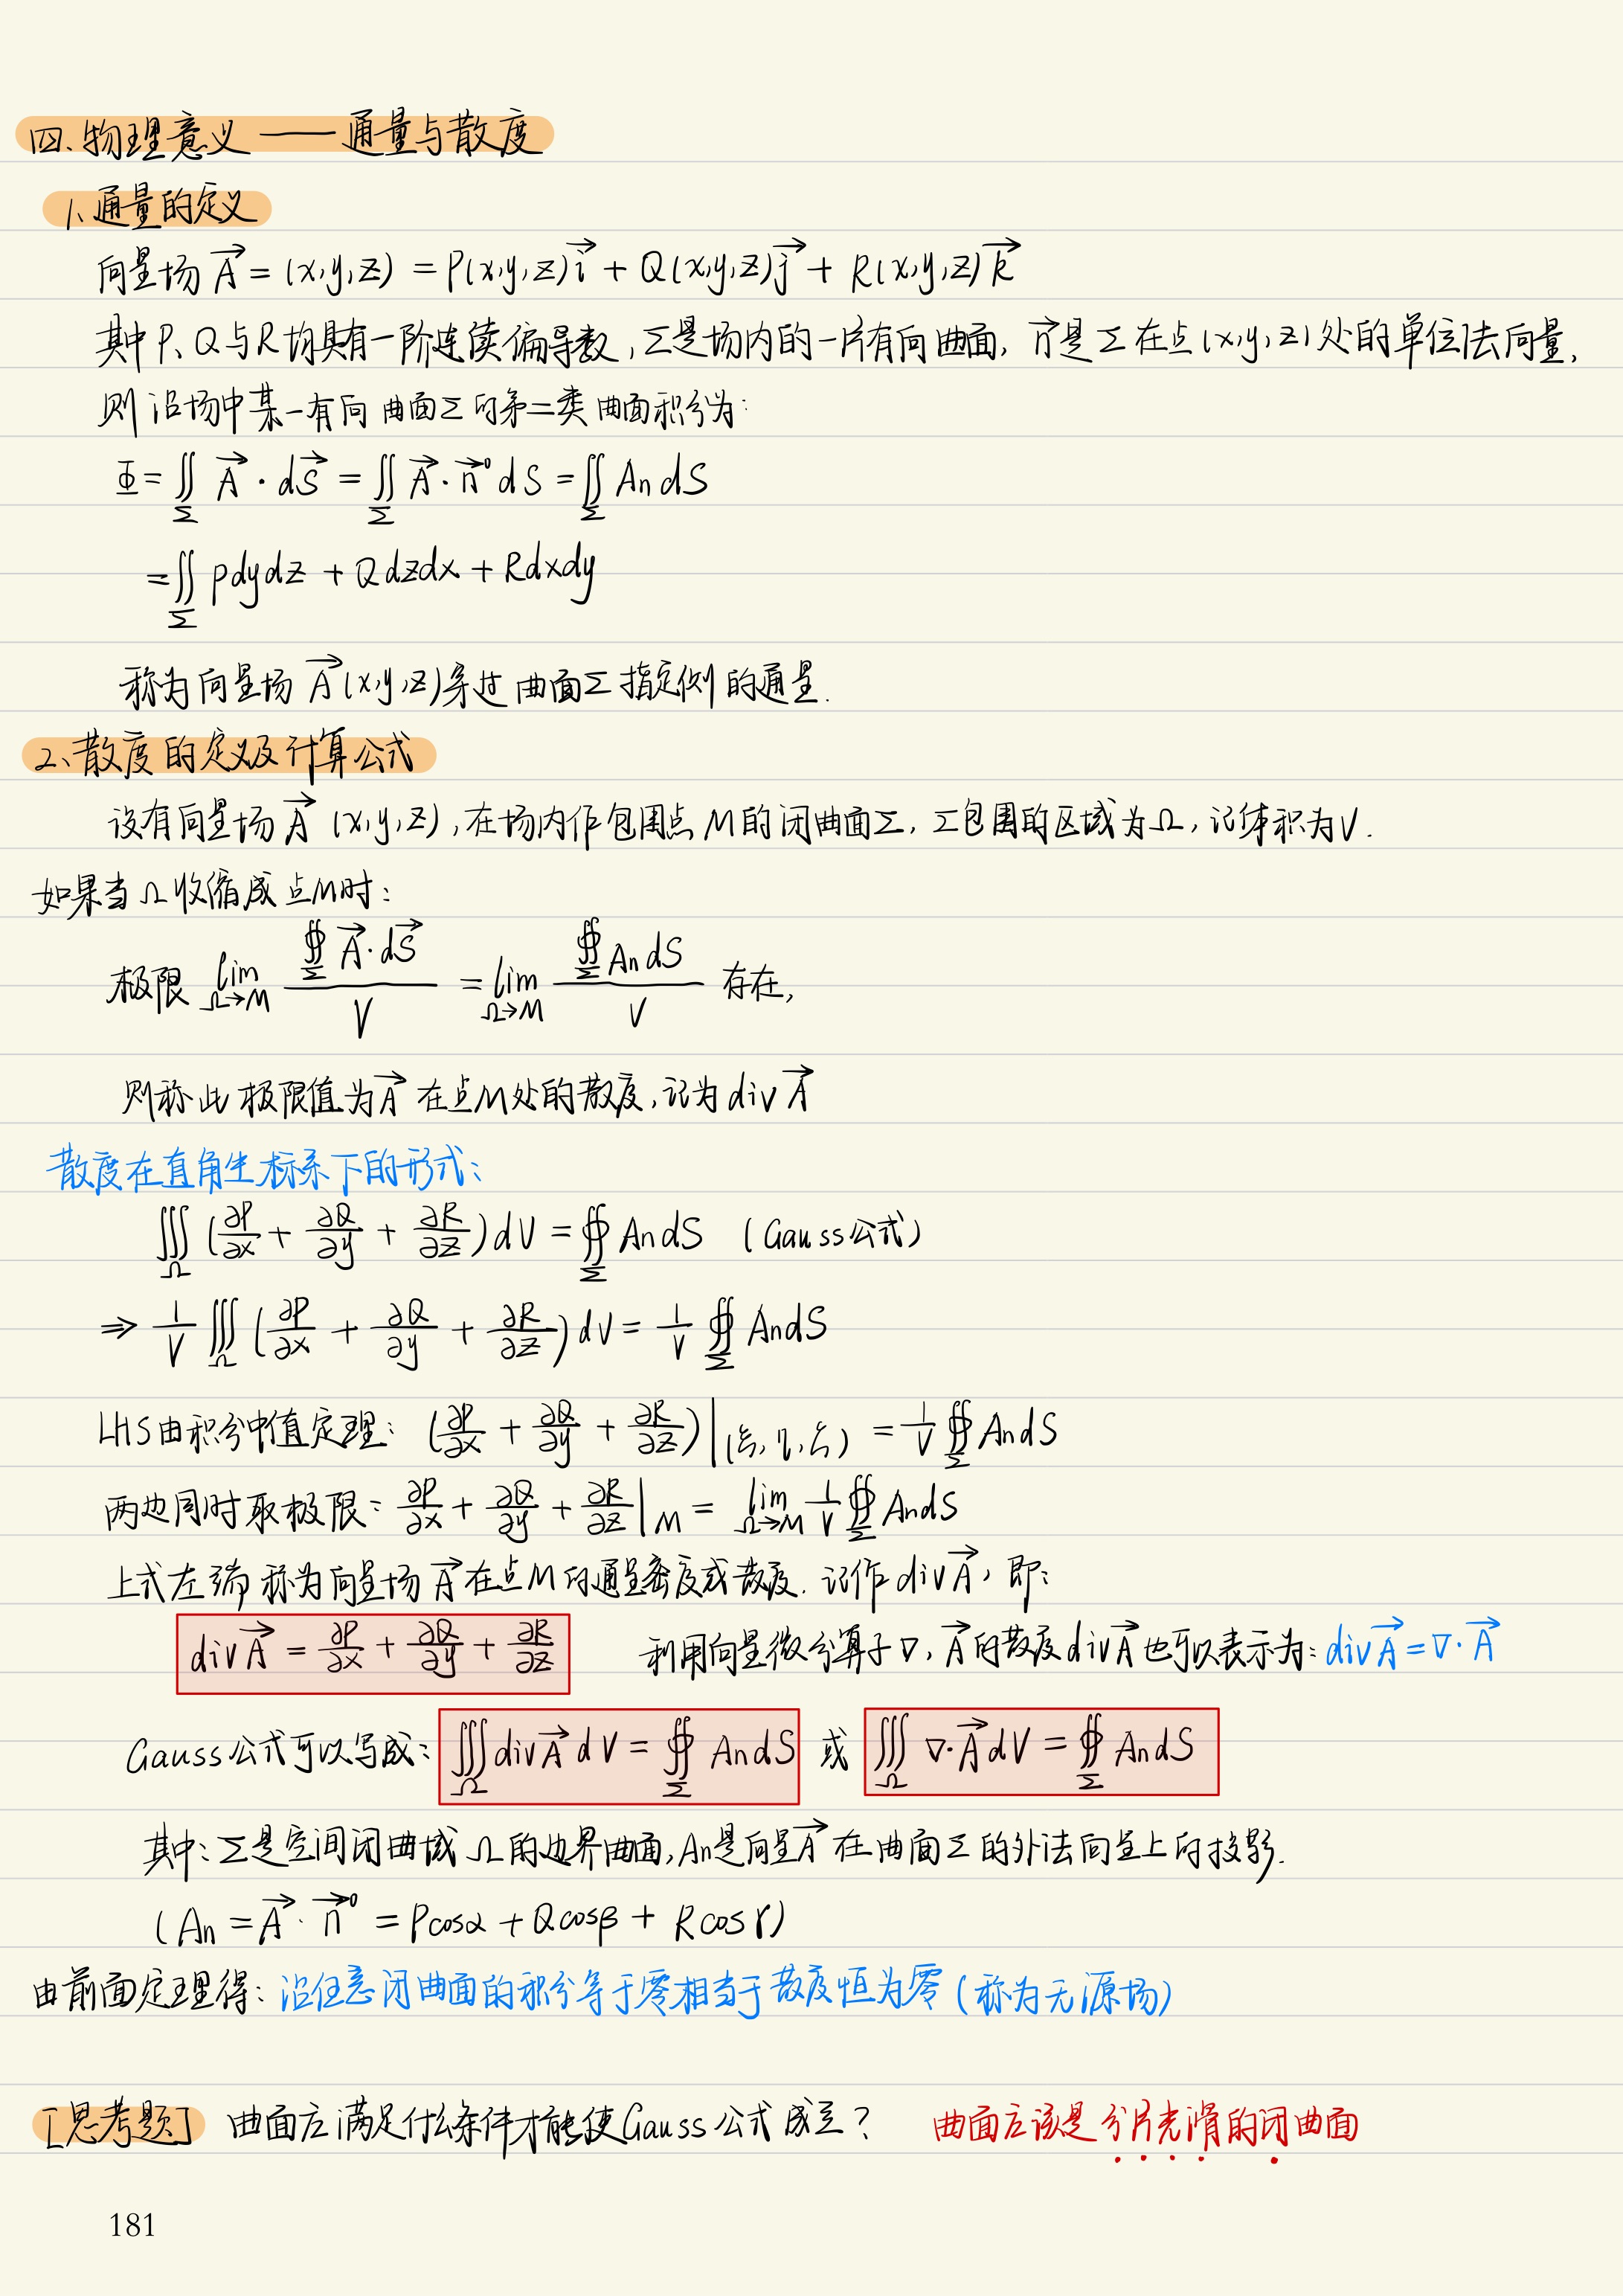 四.物理意义 —— 通量与散度
1、通量的定义
向量场 $\vec{A} = (x,y,z) = P(x,y,z)\vec{i} + Q(x,y,z)\vec{j} + R(x,y,z)\vec{k}$
其中 P、Q与R均具有一阶连续偏导数,Σ是场内的一片有向曲面, $\vec{n}$是Σ在点(x,y,z)处的单位法向量,
则沿场中某一有向曲面Σ的第二类曲面积分为:
$\Phi = \iint_{\Sigma} \vec{A} \cdot d\vec{S} = \iint_{\Sigma} \vec{A} \cdot \vec{n}^0 dS = \iint_{\Sigma} A_n dS$
$= \iint_{\Sigma} Pdydz + Qdzdx + Rdxdy$
称为向量场 $\vec{A}$(x,y,z)穿过曲面Σ指定侧的通量.
2、散度的定义及计算公式
设有向量场 $\vec{A}$ (x,y,z),在场内作包围点M的闭曲面Σ, Σ包围的区域为Ω,记体积为V.
如果当Ω收缩成点M时:
极限 $\lim_{\Omega \to M} \frac{\oiint_{\Sigma} \vec{A} \cdot d\vec{S}}{V} = \lim_{\Omega \to M} \frac{\oiint_{\Sigma} A_n dS}{V}$ 存在,
则称此极限值为$\vec{A}$在点M处的散度,记为 div$\vec{A}$
散度在直角坐标系下的形式:
$\iiint_{\Omega} (\frac{\partial P}{\partial x} + \frac{\partial Q}{\partial y} + \frac{\partial R}{\partial z}) dV = \oiint_{\Sigma} A_n dS$ (Gauss公式)
$\Rightarrow \frac{1}{V} \iiint_{\Omega} (\frac{\partial P}{\partial x} + \frac{\partial Q}{\partial y} + \frac{\partial R}{\partial z}) dV = \frac{1}{V} \oiint_{\Sigma} A_n dS$
LHS由积分中值定理: $(\frac{\partial P}{\partial x} + \frac{\partial Q}{\partial y} + \frac{\partial R}{\partial z})|_{(\xi,\eta,\xi)} = \frac{1}{V} \oiint_{\Sigma} A_n dS$
两边同时取极限: $\frac{\partial P}{\partial x} + \frac{\partial Q}{\partial y} + \frac{\partial R}{\partial z}|_M = \lim_{\Omega \to M} \frac{1}{V} \oiint_{\Sigma} A_n dS$
上式左端称为向量场$\vec{A}$在点M的通量密度或散度. 记作 div$\vec{A}$, 即:
$div\vec{A} = \frac{\partial P}{\partial x} + \frac{\partial Q}{\partial y} + \frac{\partial R}{\partial z}$ 利用向量微分算子∇, $\vec{A}$的散度div$\vec{A}$也可以表示为: $div\vec{A} = \nabla \cdot \vec{A}$
Gauss公式可以写成: $\iiint_{\Omega} div\vec{A} dV = \oiint_{\Sigma} A_n dS$ 或 $\iiint_{\Omega} \nabla \cdot \vec{A} dV = \oiint_{\Sigma} A_n dS$
其中: Σ是空间闭曲域Ω的边界曲面,An是向量$\vec{A}$在曲面Σ的外法向量上的投影.
($A_n = \vec{A} \cdot \vec{n}^0 = P\cos\alpha + Q\cos\beta + R\cos\gamma$)
由前面定理得: 沿任意闭曲面的积分等于零相当于散度恒为零 (称为无源场)
[思考题] 曲面应满足什么条件才能使Gauss公式成立? 曲面应该是分片光滑的闭曲面
181